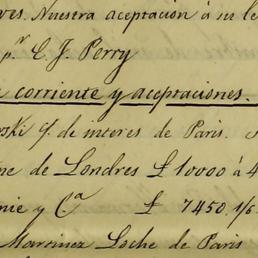 ves. Nuestra aceptacion á su le
pr C. J. Perry
corriente y aceptaciones.
ski g. de interes de Paris.
ne de Londres £ 10000 á 4
nie y Ca £ 7450. 1/6
Martinez Loche de Paris